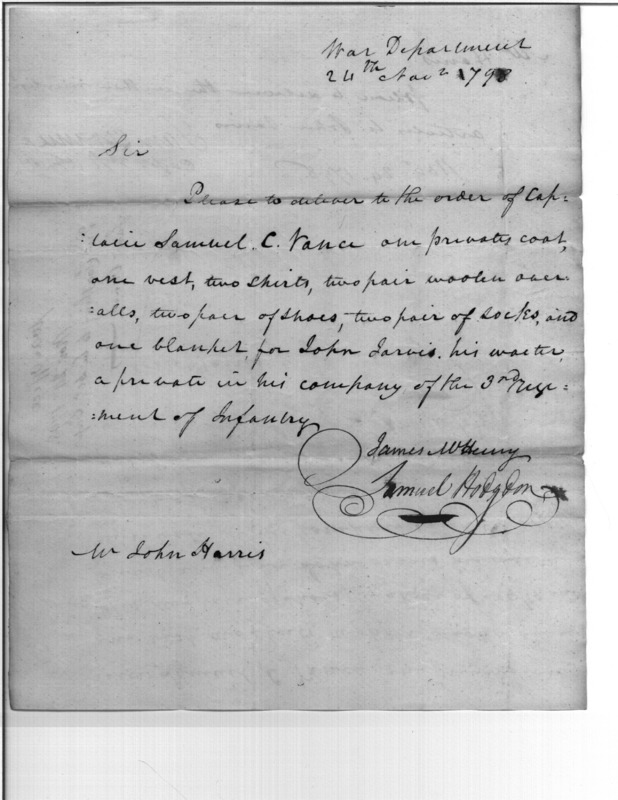 War Department
24th Novr 1798
Sir
Please to deliver to the order of Cap-
-tain Samuel. C. Vance one privates coat,
one vest, two shirts, two pair woolen over-
-alls, two pair of shoes, two pair of socks, and
one blanket, for John Jarvis. his waiter,
a private in his company of the 3rd Regi-
-ment of Infantry
James McHenry
Samuel Hodgdon
Mr John Harris